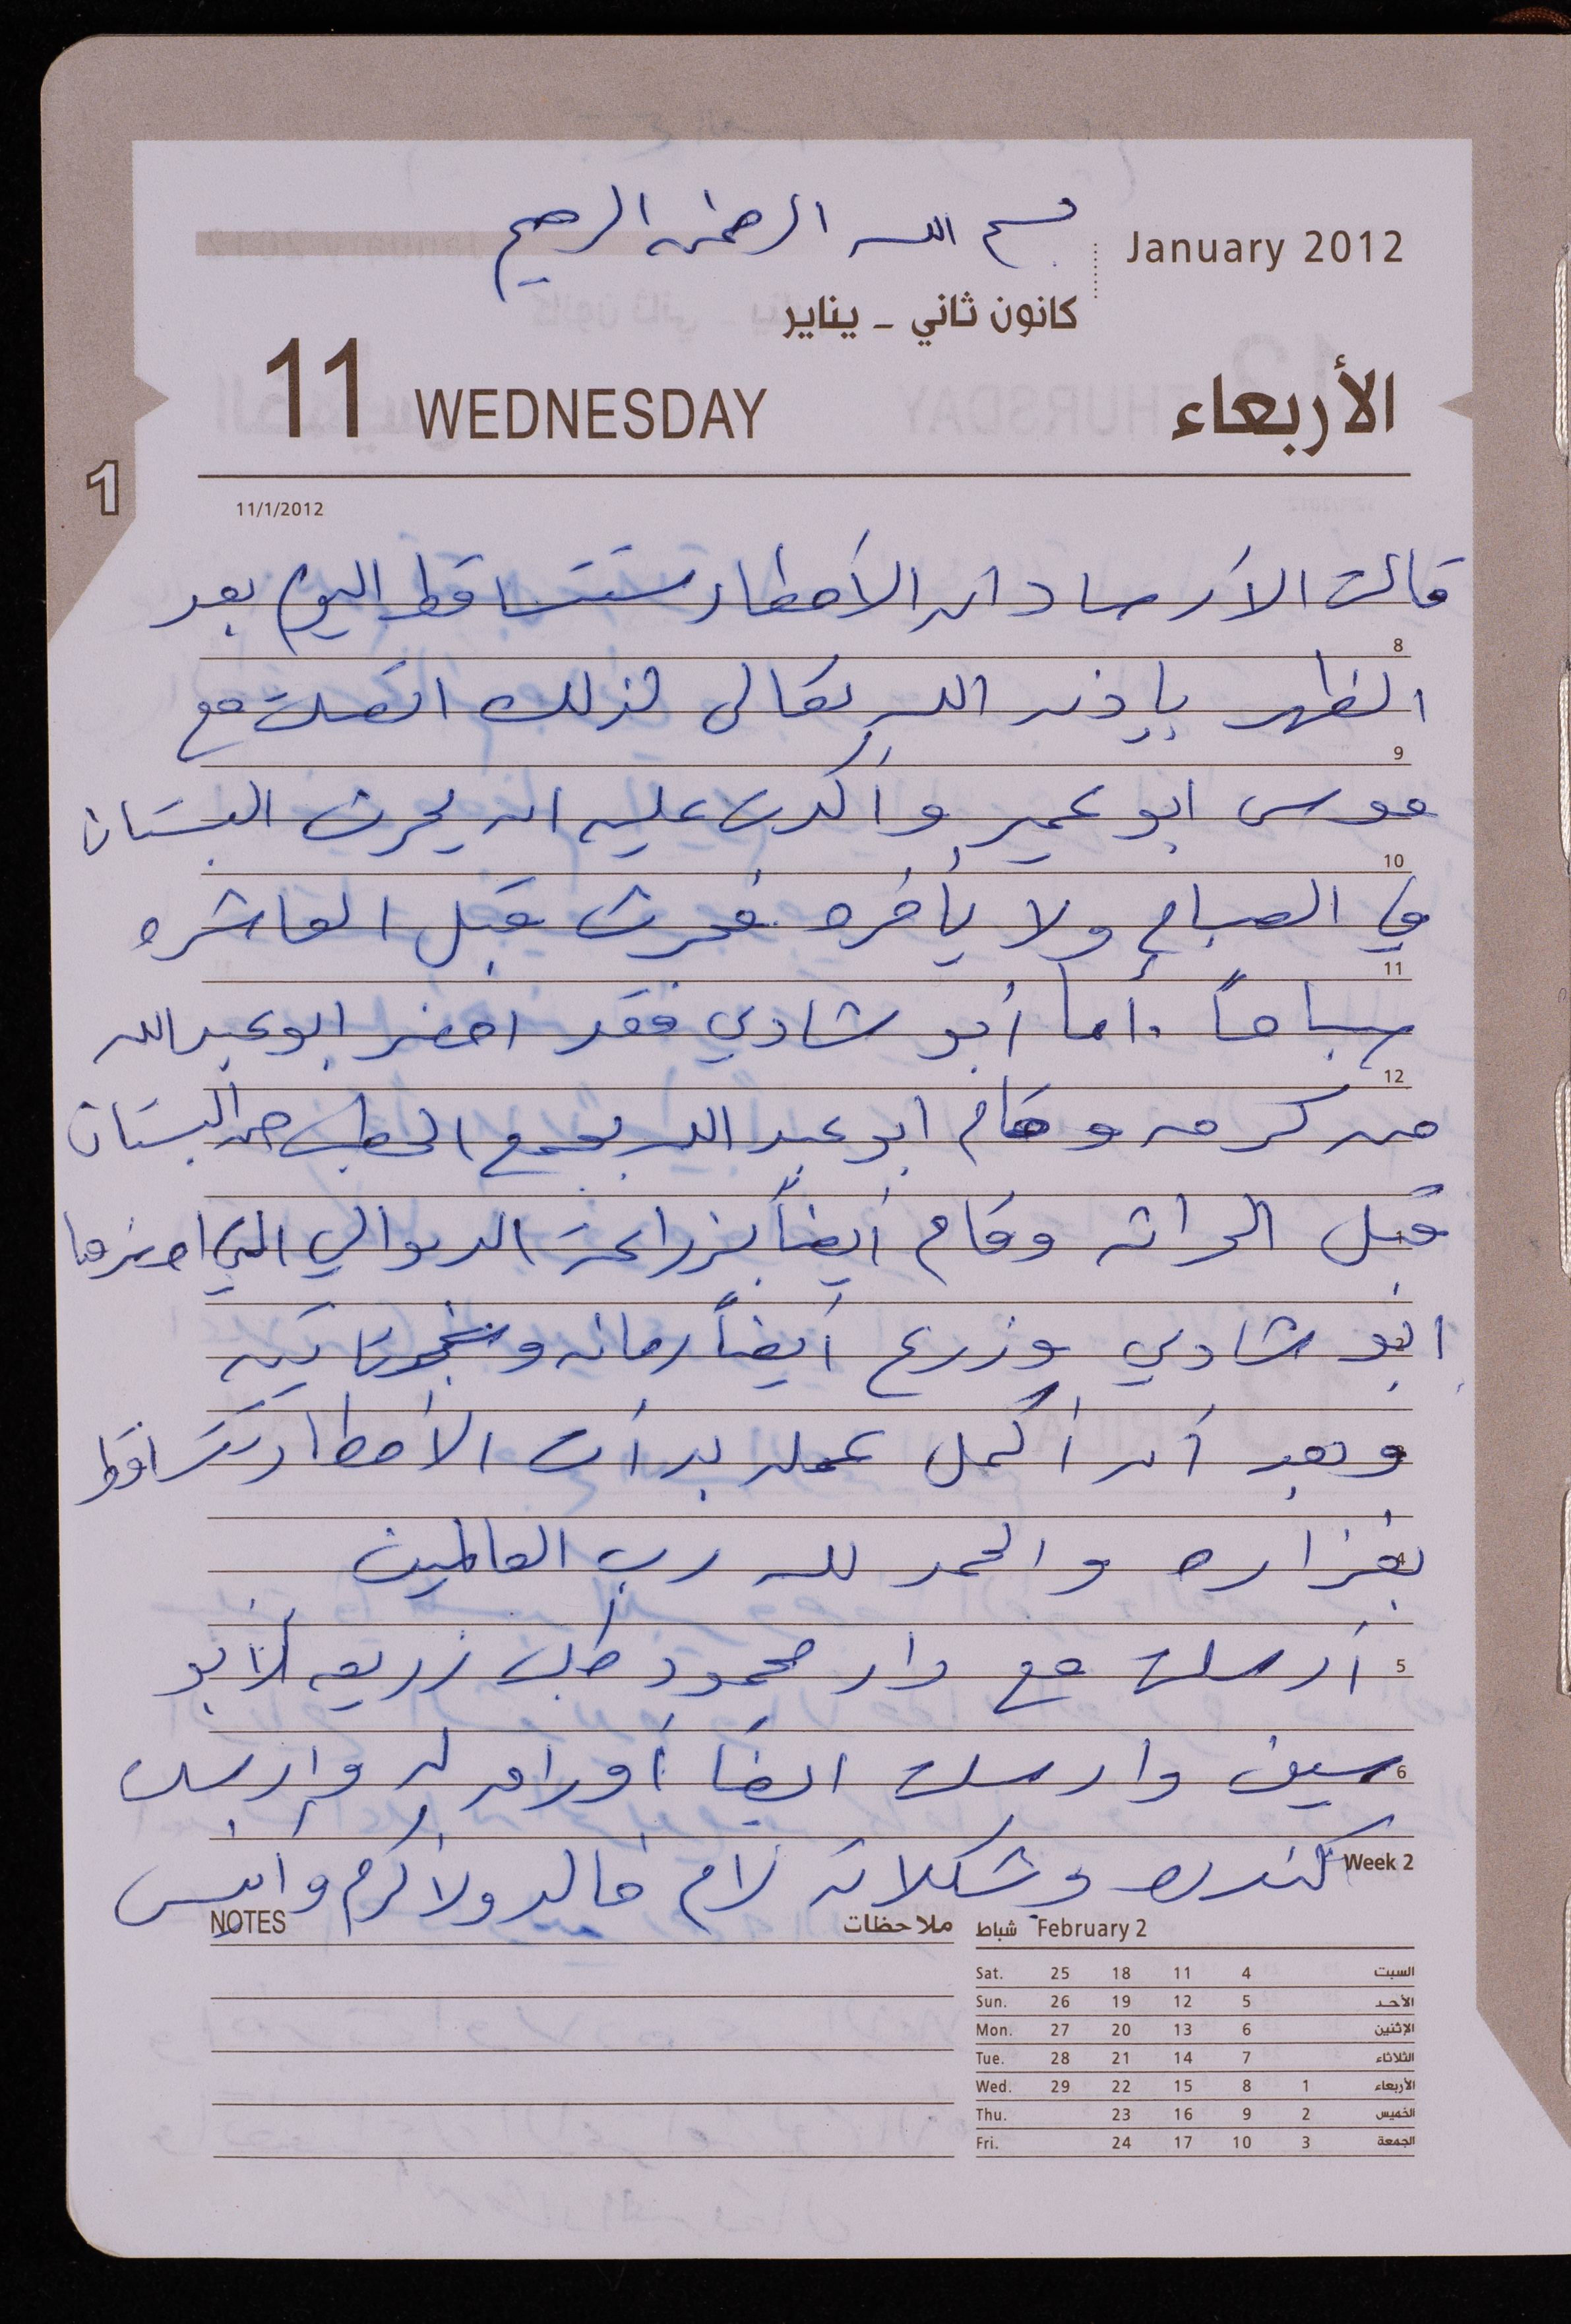 بسم الله الرحمن الرحيم
January 2012
كانون ثاني - يناير
11 WEDNESDAY الأربعاء
1
11/1/2012
قالت الأرصاد ان الأمطار ستتساقط اليوم بعد
8
الظهر بإذن الله تعالى لذلك اتصلت مع
9
موسى ابو عمير وأكدت عليه ان يحرث البستان
10
في الصباح ولا يأخره فحرث قبل العاشره
11
صباحاً . أما أبو شادي فقد احضر ابو عبد الله
12
من كرمه وقام ابو عبد الله بجمع الحطب من البستان
قبل الحراثه وقام أيضاً بزراعة الدوالي التي احضرها
ابو شادي وزرع أيضاً رمانه و
وبعد أن أكمل عمله بدأت الأمطار تتساقط
بغزاره والحمد لله رب العالمين
4
أرسلت مع دار محمود طلب زريعه لأبو
5
سيف وارسلت ايضاً أوراق له وارسلت
6
كندره وشكلاته لام خالد ولاكرم وانس
Week 2
NOTES ملاحظات
February 2 شباط
Sat. 25 18 11 4 السبت
Sun. 26 19 12 5 الأحد
Mon. 27 20 13 6 الإثنين
Tue. 28 21 14 7 الثلاثاء
Wed. 29 22 15 8 1 الأربعاء
Thu. 23 16 9 2 الخميس
Fri. 24 17 10 3 الجمعة